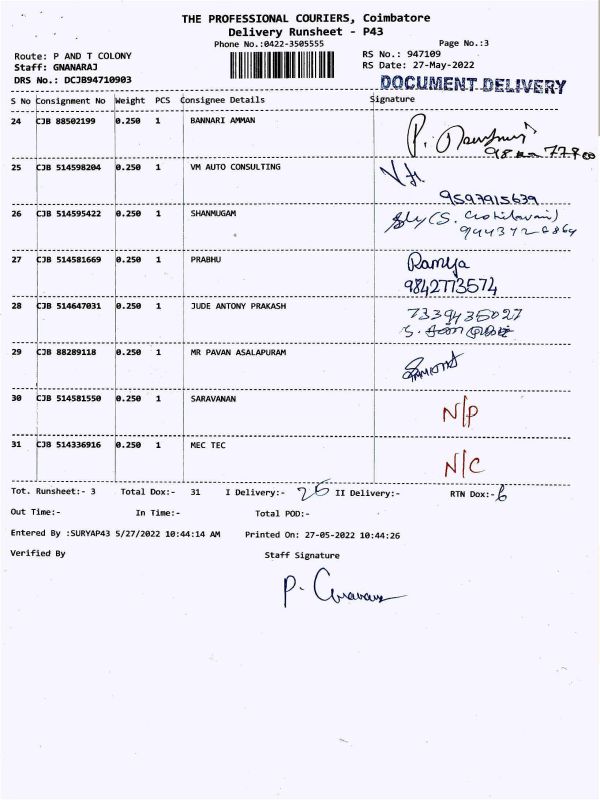 THE PROFESSIONAL COURIERS, Coimbatore
Delivery Runsheet - P43
Phone No.:0422-3505555 Page No.:3
Route: P AND T COLONY RS No.: 947109
Staff: GNANARAJ RS Date: 27-May-2022
DRS No.: DCJB94710903
DOCUMENT DELIVERY
S No Consignment No Weight PCS Consignee Details Signature
24 CJB 88502199 0.250 1 BANNARI AMMAN
25 CJB 514598204 0.250 1 VM AUTO CONSULTING
9593915639
26 CJB 514595422 0.250 1 SHANMUGAM
27 CJB 514581669 0.250 1 PRABHU Ramya
9842773574
28 CJB 514647031 0.250 1 JUDE ANTONY PRAKASH 7339435027
29 CJB 88289118 0.250 1 MR PAVAN ASALAPURAM
30 CJB 514581550 0.250 1 SARAVANAN N/P
31 CJB 514336916 0.250 1 MEC TEC N/C
Tot. Runsheet:- 3 Total Dox:- 31 I Delivery:- 25 II Delivery:- RTN Dox:- 6
Out Time:- In Time:- Total POD:-
Entered By :SURYAP43 5/27/2022 10:44:14 AM Printed On: 27-05-2022 10:44:26
Verified By Staff Signature